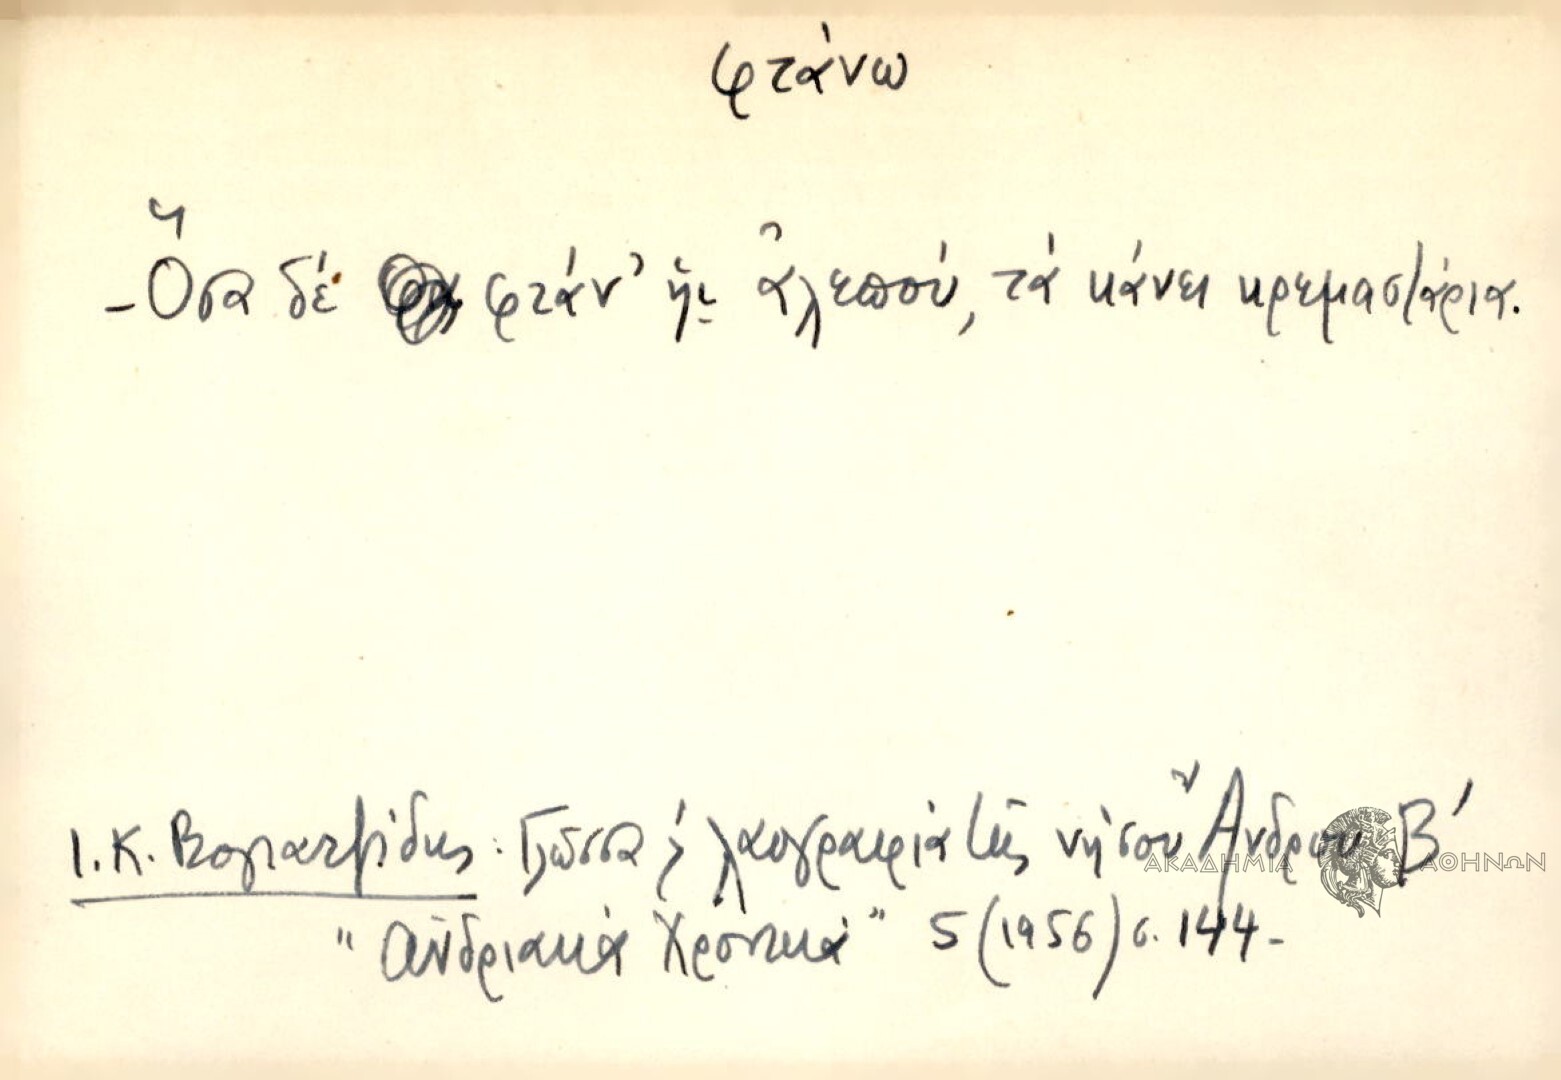 φτάνω
- Ὅσα δέ φτάν' ἡ ἀλεπού, τά κάνει κρεμαστάρια.
Ι. Κ. Βογιατζίδης: Γλῶσσα & λαογραφία τῆς νήσου Ἄνδρου Β'
"Ἀνδριακά Χρονικά" 5 (1956) σ. 144 -
ΑΚΑΔΗΜΙΑ ΑΘΗΝΩΝ